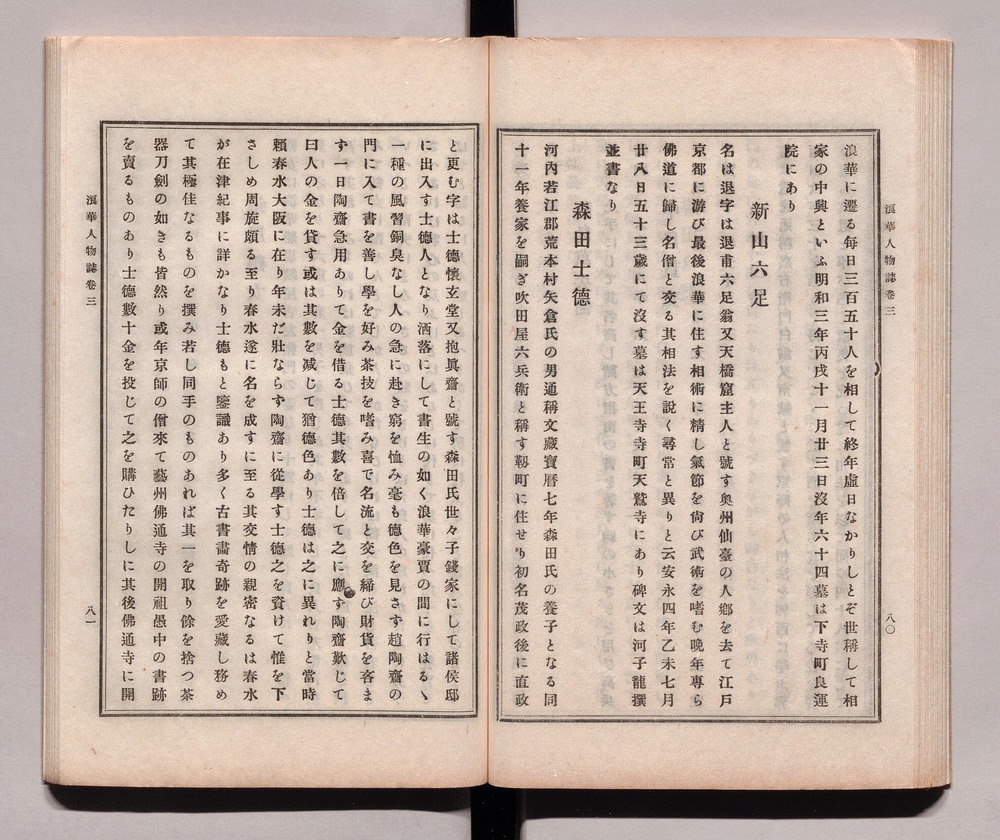 浪華人物誌卷三
八〇
浪華に遷る每日三百五十人を相して終年虛日なかりしとぞ世稱して相
家の中興といふ明和三年丙戌十一月廿三日沒年六十四墓は下寺町良運
院にあり
新山六足
名は退字は退甫六足翁又天橋窟主人と號す奥州仙臺の人鄕を去て江戶
京都に游び最後浪華に住す相術に精し氣節を尙び武術を嗜む晚年專ら
佛道に歸し名僧と交る其相法を說く尋常と異りと云安永四年乙未七月
廿八日五十三歲にて沒す墓は天王寺寺町天鷲寺にあり碑文は河子龍撰
並書なり
森田士德
河內若江郡荒本村矢倉氏の男通稱文藏寶曆七年森田氏の養子となる同
十一年養家を嗣ぎ吹田屋六兵衛と稱す靱町に住せり初名茂政後に直政
と更む字は士德懷玄堂又抱眞齋と號す森田氏世々子錢家にして諸侯邸
に出入す士德人となり洒落にして書生の如く浪華豪賈の間に行はるゝ
一種の風習銅臭なし人の急に赴き窮を恤み毫も德色を見さず趙陶齋の
門に入て書を善し學を好み茶技を嗜み喜で名流と交を締び財貨を吝ま
ず一日陶齋急用ありて金を借る士德其數を倍して之に應ず陶齋歎じて
曰人の金を貸す或は其數を减じて猶德色あり士德は之に異れりと當時
賴春水大阪に在り年未だ壯ならず陶齋に從學す士德之を資けて惟を下
さしめ周旋頗る至り春水遂に名を成すに至る其交情の親密なるは春水
が在津紀事に詳かなり士德もと鑒識あり多く古書畵奇跡を愛藏し務め
て其極佳なるものを撰み若し同手のものあれば其一を取り餘を捨つ茶
器刀劍の如きも皆然り或年京師の僧來て藝州佛通寺の開祖愚中の書跡
を賣るものあり士德數十金を投じて之を購ひたりしに其後佛通寺に開
浪華人物誌卷三
八一